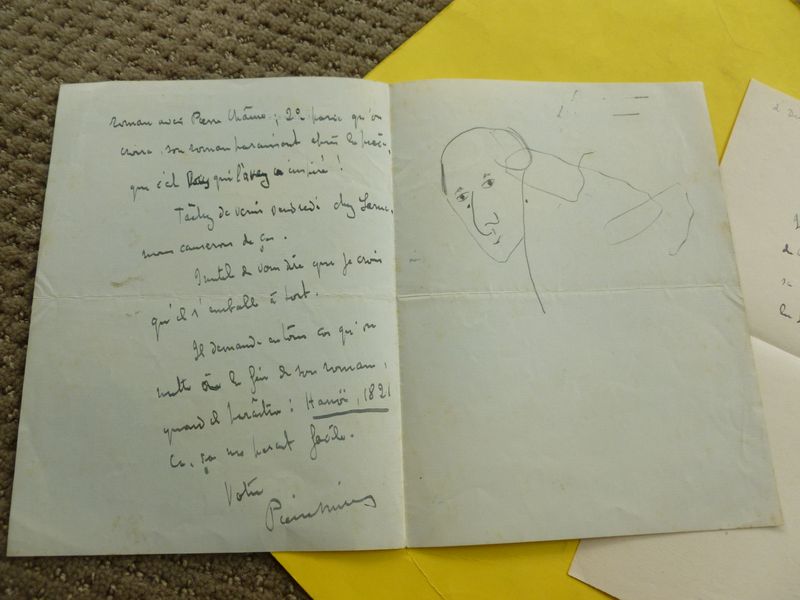 roman avec Pierre
2° parce qu'on
croira, son roman paraissant après la pièce,
que c'est qui l'avez inspiré !
Tâchez de venir vendredi chez
nous causerons de ça.
Inutile de vous dire que je crois
qu'il s'emballe à tort.
Il demande en tous cas qu'on
mette à la fin de son roman,
quand il paraîtra : Hanoï, 1821
Ca, ça me paraît facile.
Votre
Pierre